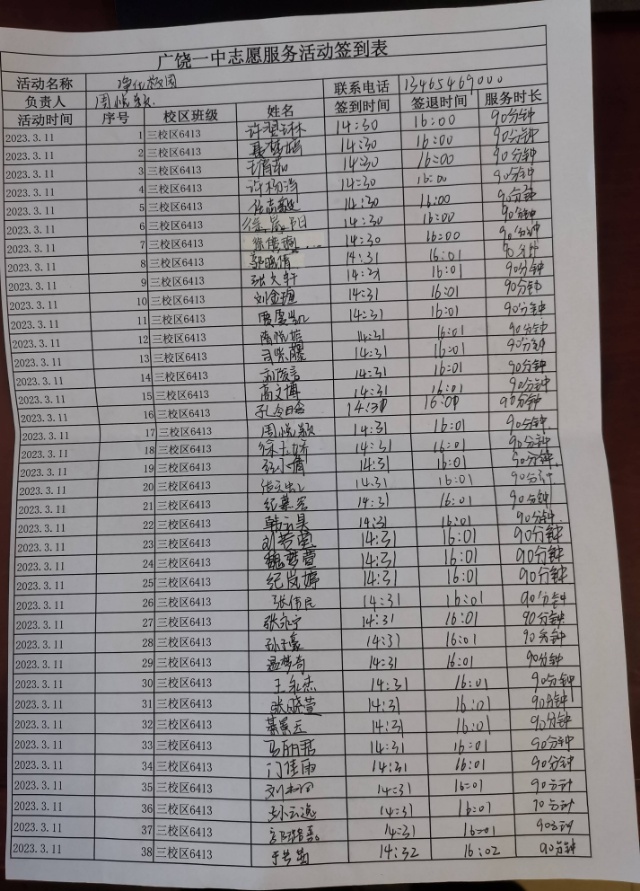 广饶一中志愿服务活动签到表
活动名称 净化校园 联系电话 13465469000
负责人 周悦颖 签到时间 签退时间 服务时长
活动时间 序号 校区班级 姓名
2023.3.11 1 三校区6413 14:30 16:00 90分钟
2023.3.11 2 三校区6413 14:30 16:00 90分钟
2023.3.11 3 三校区6413 14:30 16:00 90分钟
2023.3.11 4 三校区6413 14:30 16:00 90分钟
2023.3.11 5 三校区6413 14:30 16:00 90分钟
2023.3.11 6 三校区6413 14:30 16:00 90分钟
2023.3.11 7 三校区6413 14:30 16:00 90分钟
2023.3.11 8 三校区6413 14:31 16:01 90分钟
2023.3.11 9 三校区6413 张天轩 14:31 16:01 90分钟
2023.3.11 10 三校区6413 14:31 16:01 90分钟
2023.3.11 11 三校区6413 14:31 16:01 90分钟
2023.3.11 12 三校区6413 14:31 16:01 90分钟
2023.3.11 13 三校区6413 14:31 16:01 90分钟
2023.3.11 14 三校区6413 14:31 16:01 90分钟
2023.3.11 15 三校区6413 高文博 14:31 16:01 90分钟
2023.3.11 16 三校区6413 16:00 90分钟
2023.3.11 17 三校区6413 周悦颖 14:31 16:01 90分钟
2023.3.11 18 三校区6413 14:31 16:01 90分钟
2023.3.11 19 三校区6413 14:31 16:01 90分钟
2023.3.11 20 三校区6413 14:31 16:01 90分钟
2023.3.11 21 三校区6413 14:31 16:01 90分钟
2023.3.11 22 三校区6413 14:31 16:01 90分钟
2023.3.11 23 三校区6413 14:31 16:01 90分钟
2023.3.11 24 三校区6413 魏梦萱 14:31 16:01 90分钟
2023.3.11 25 三校区6413 纪岚婷 14:31 16:01 90分钟
2023.3.11 26 三校区6413 张伟民 14:31 16:01 90分钟
2023.3.11 27 三校区6413 张永宁 14:31 16:01 90分钟
2023.3.11 28 三校区6413 14:31 16:01 90分钟
2023.3.11 29 三校区6413 14:31 16:01 90分钟
2023.3.11 30 三校区6413 王永杰 14:31 16:01 90分钟
2023.3.11 31 三校区6413 张晓萱 14:31 16:01 90分钟
2023.3.11 32 三校区6413 14:31 16:01 90分钟
2023.3.11 33 三校区6413 14:31 16:01 90分钟
2023.3.11 34 三校区6413 门佳雨 14:31 16:01 90分钟
2023.3.11 35 三校区6413 14:31 16:01 90分钟
2023.3.11 36 三校区6413 14:31 16:01 90分钟
2023.3.11 37 三校区6413 14:31 16:01 90分钟
2023.3.11 38 三校区6413 14:32 16:02 90分钟